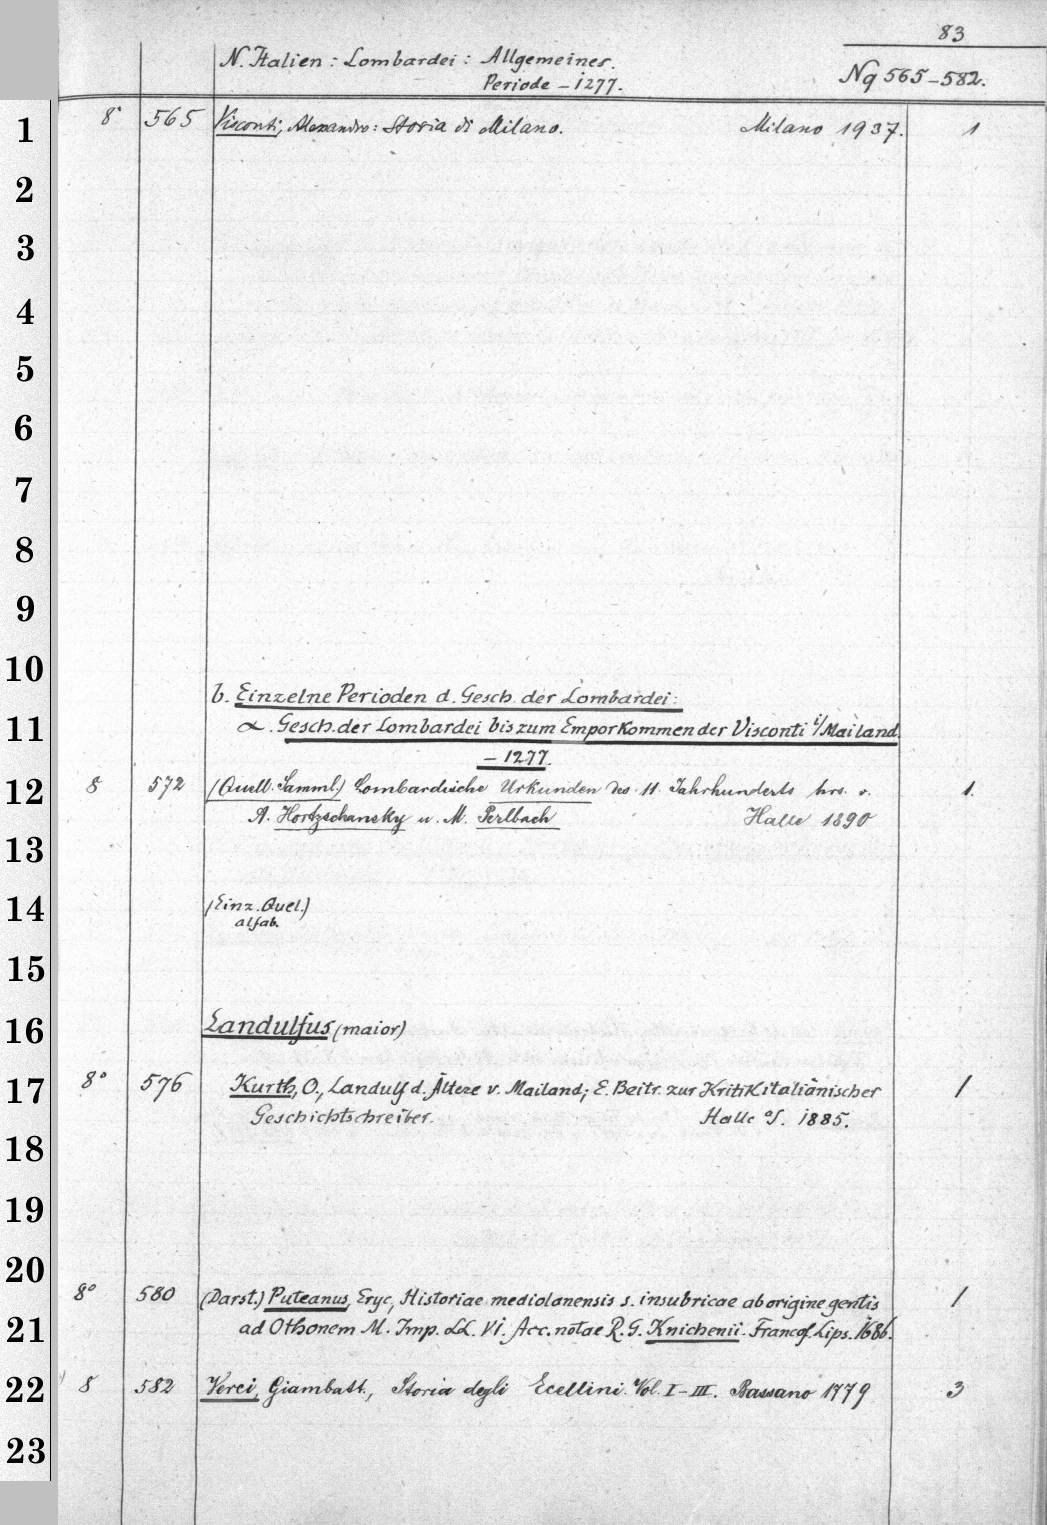 83
N. Italien : Lombardei : Allgemeines.
Periode – 1277.
Nq 565–582.
1 8° 565 Visconti, Alexandro: Storia di Milano. Milano 1937. 1
2
3
4
5
6
7
8
9
10
b. Einzelne Perioden d. Gesch. der Lombardei:
11 α. Gesch. der Lombardei bis zum Emporkommen der Visconti i/Mailand
– 1277.
12 8 572 (Quell. Samml.) Lombardische Urkunden des 11. Jahrhunderts hrs. v. 1.
A. Hortzschansky u. M. Perlbach Halle 1890
13
14 (Einz. Quel.)
alfab.
15
16 Landulfus (maior)
17 8° 576 Kurth, O., Landulf d. Ältere v. Mailand; E. Beitr. zur Kritik italiänischer 1
Geschichtschreiber. Halle a/S. 1885.
18
19
20 8° 580 (Darst.) Puteanus, Eryc, Historiae mediolanensis s. insubricae ab origine gentis 1
21 ad Othonem M. Imp. LL. VI. Acc. notae R. G. Knichenii. Francof. Lips. 1686.
22 8 582 Verci, Giambatt., Storia degli Ecellini. Vol. I–III. Bassano 1779 3
23